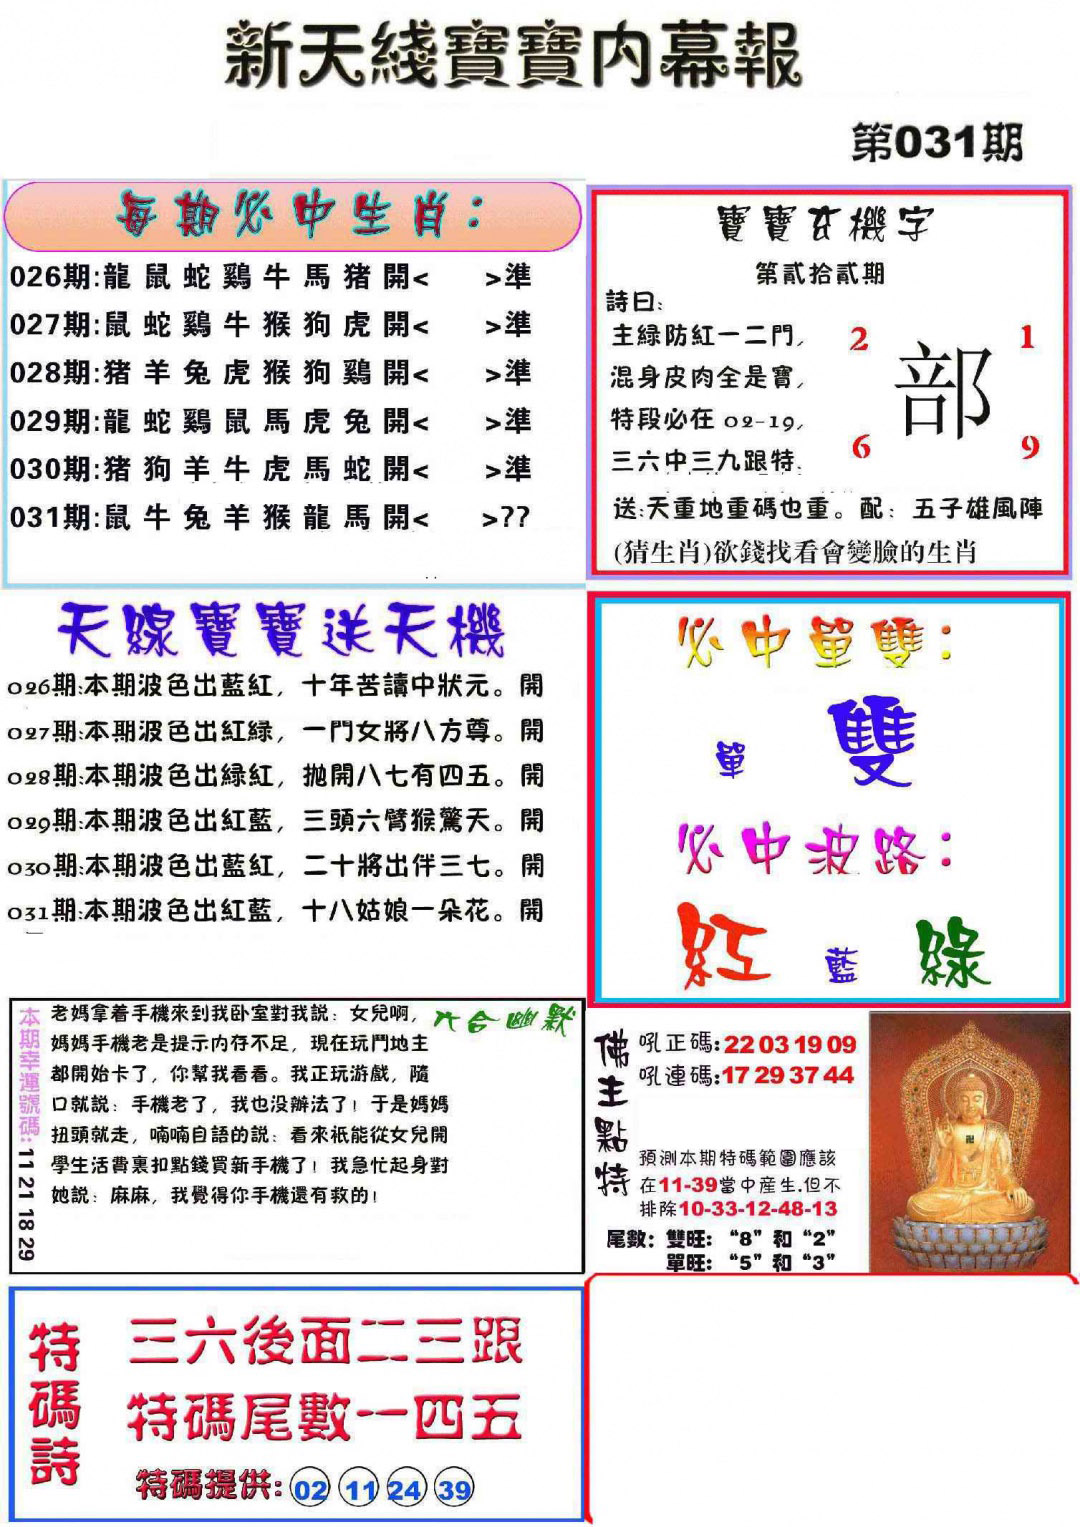 新天綫寶寶内幕報
第031期
每期必中生肖：
026期:龍鼠蛇鷄牛馬猪開<　>準
027期:鼠蛇鷄牛猴狗虎開<　>準
028期:猪羊兔虎猴狗鷄開<　>準
029期:龍蛇鷄鼠馬虎兔開<　>準
030期:猪狗羊牛虎馬蛇開<　>準
031期:鼠牛兔羊猴龍馬開<　>??
寶寶玄機字
第貳拾貳期
詩曰:
主緑防紅一二門,
混身皮肉全是寶,
特段必在 02-19,
三六中三九跟特.
2 1
部
6 9
送:天重地重碼也重。配：五子雄風陣
(猜生肖)欲錢找看會變臉的生肖
天線寶寶送天機
026期:本期波色出藍紅，十年苦讀中狀元。開
027期:本期波色出紅緑，一門女將八方尊。開
028期:本期波色出緑紅，抛開八七有四五。開
029期:本期波色出紅藍，三頭六臂猴驚天。開
030期:本期波色出藍紅，二十將出伴三七。開
031期:本期波色出紅藍，十八姑娘一朵花。開
必中單雙：
單 雙
必中波路：
紅 藍 綠
本期幸運號碼:11 21 18 29
六合幽默
老媽拿着手機來到我卧室對我説：女兒啊，
媽媽手機老是提示内存不足，現在玩鬥地主
都開始卡了，你幫我看看。我正玩游戲，隨
口就説：手機老了，我也没辦法了！于是媽媽
扭頭就走，喃喃自語的説：看來衹能從女兒開
學生活費裏扣點錢買新手機了！我急忙起身對
她説：麻麻，我覺得你手機還有救的！
佛主點特
吼正碼:22 03 19 09
吼連碼:17 29 37 44
預測本期特碼範圍應該
在11-39當中産生.但不
排除10-33-12-48-13
尾數：雙旺：“8”和“2”
單旺：“5”和“3”
特碼詩
三六後面二三跟
特碼尾數一四五
特碼提供: 02 11 24 39